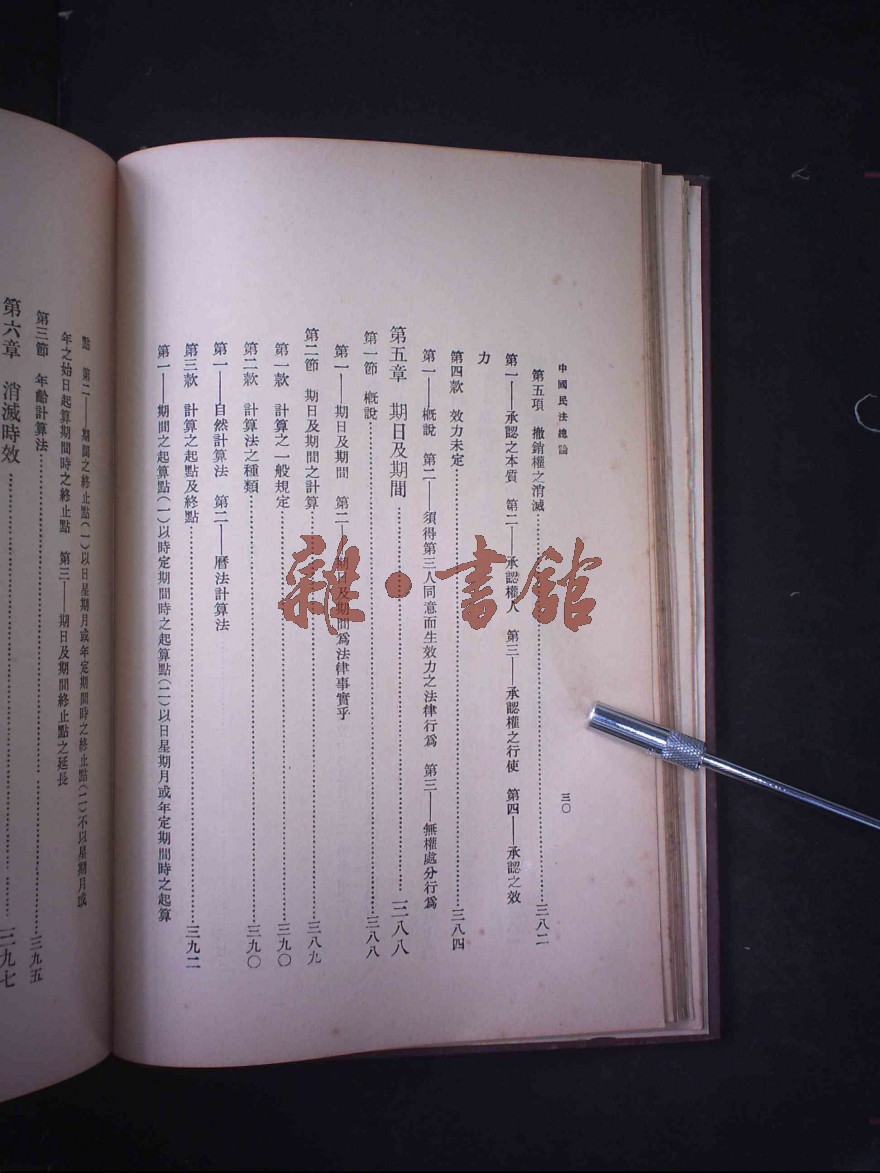 中國民法總論
三〇
第五項 撤銷權之消滅……三八二
第一——承認之本質 第二——承認權人 第三——承認權之行使 第四——承認之效
力
第四款 效力未定……三八四
第一——槪說 第二——須得第三人同意而生效力之法律行爲 第三——無權處分行爲
第五章 期日及期間……三八八
第一節 槪說……三八八
第一——期日及期間 第二——期日及期間爲法律事實乎
第二節 期日及期間之計算……三八九
第一款 計算之一般規定……三九〇
第二款 計算法之種類……三九〇
第一——自然計算法 第二——曆法計算法
第三款 計算之起點及終點……三九二
第一——期間之起算點(一)以時定期間時之起算點(二)以日星期月或年定期間時之起算
點 第二——期間之終止點(一)以日星期月或年定期間時之終止點(二)不以星期月或
年之始日起算期間時之終止點 第三——期日及期間終止點之延長
第三節 年齡計算法……三九五
第六章 消滅時效……三九七
雜·書館